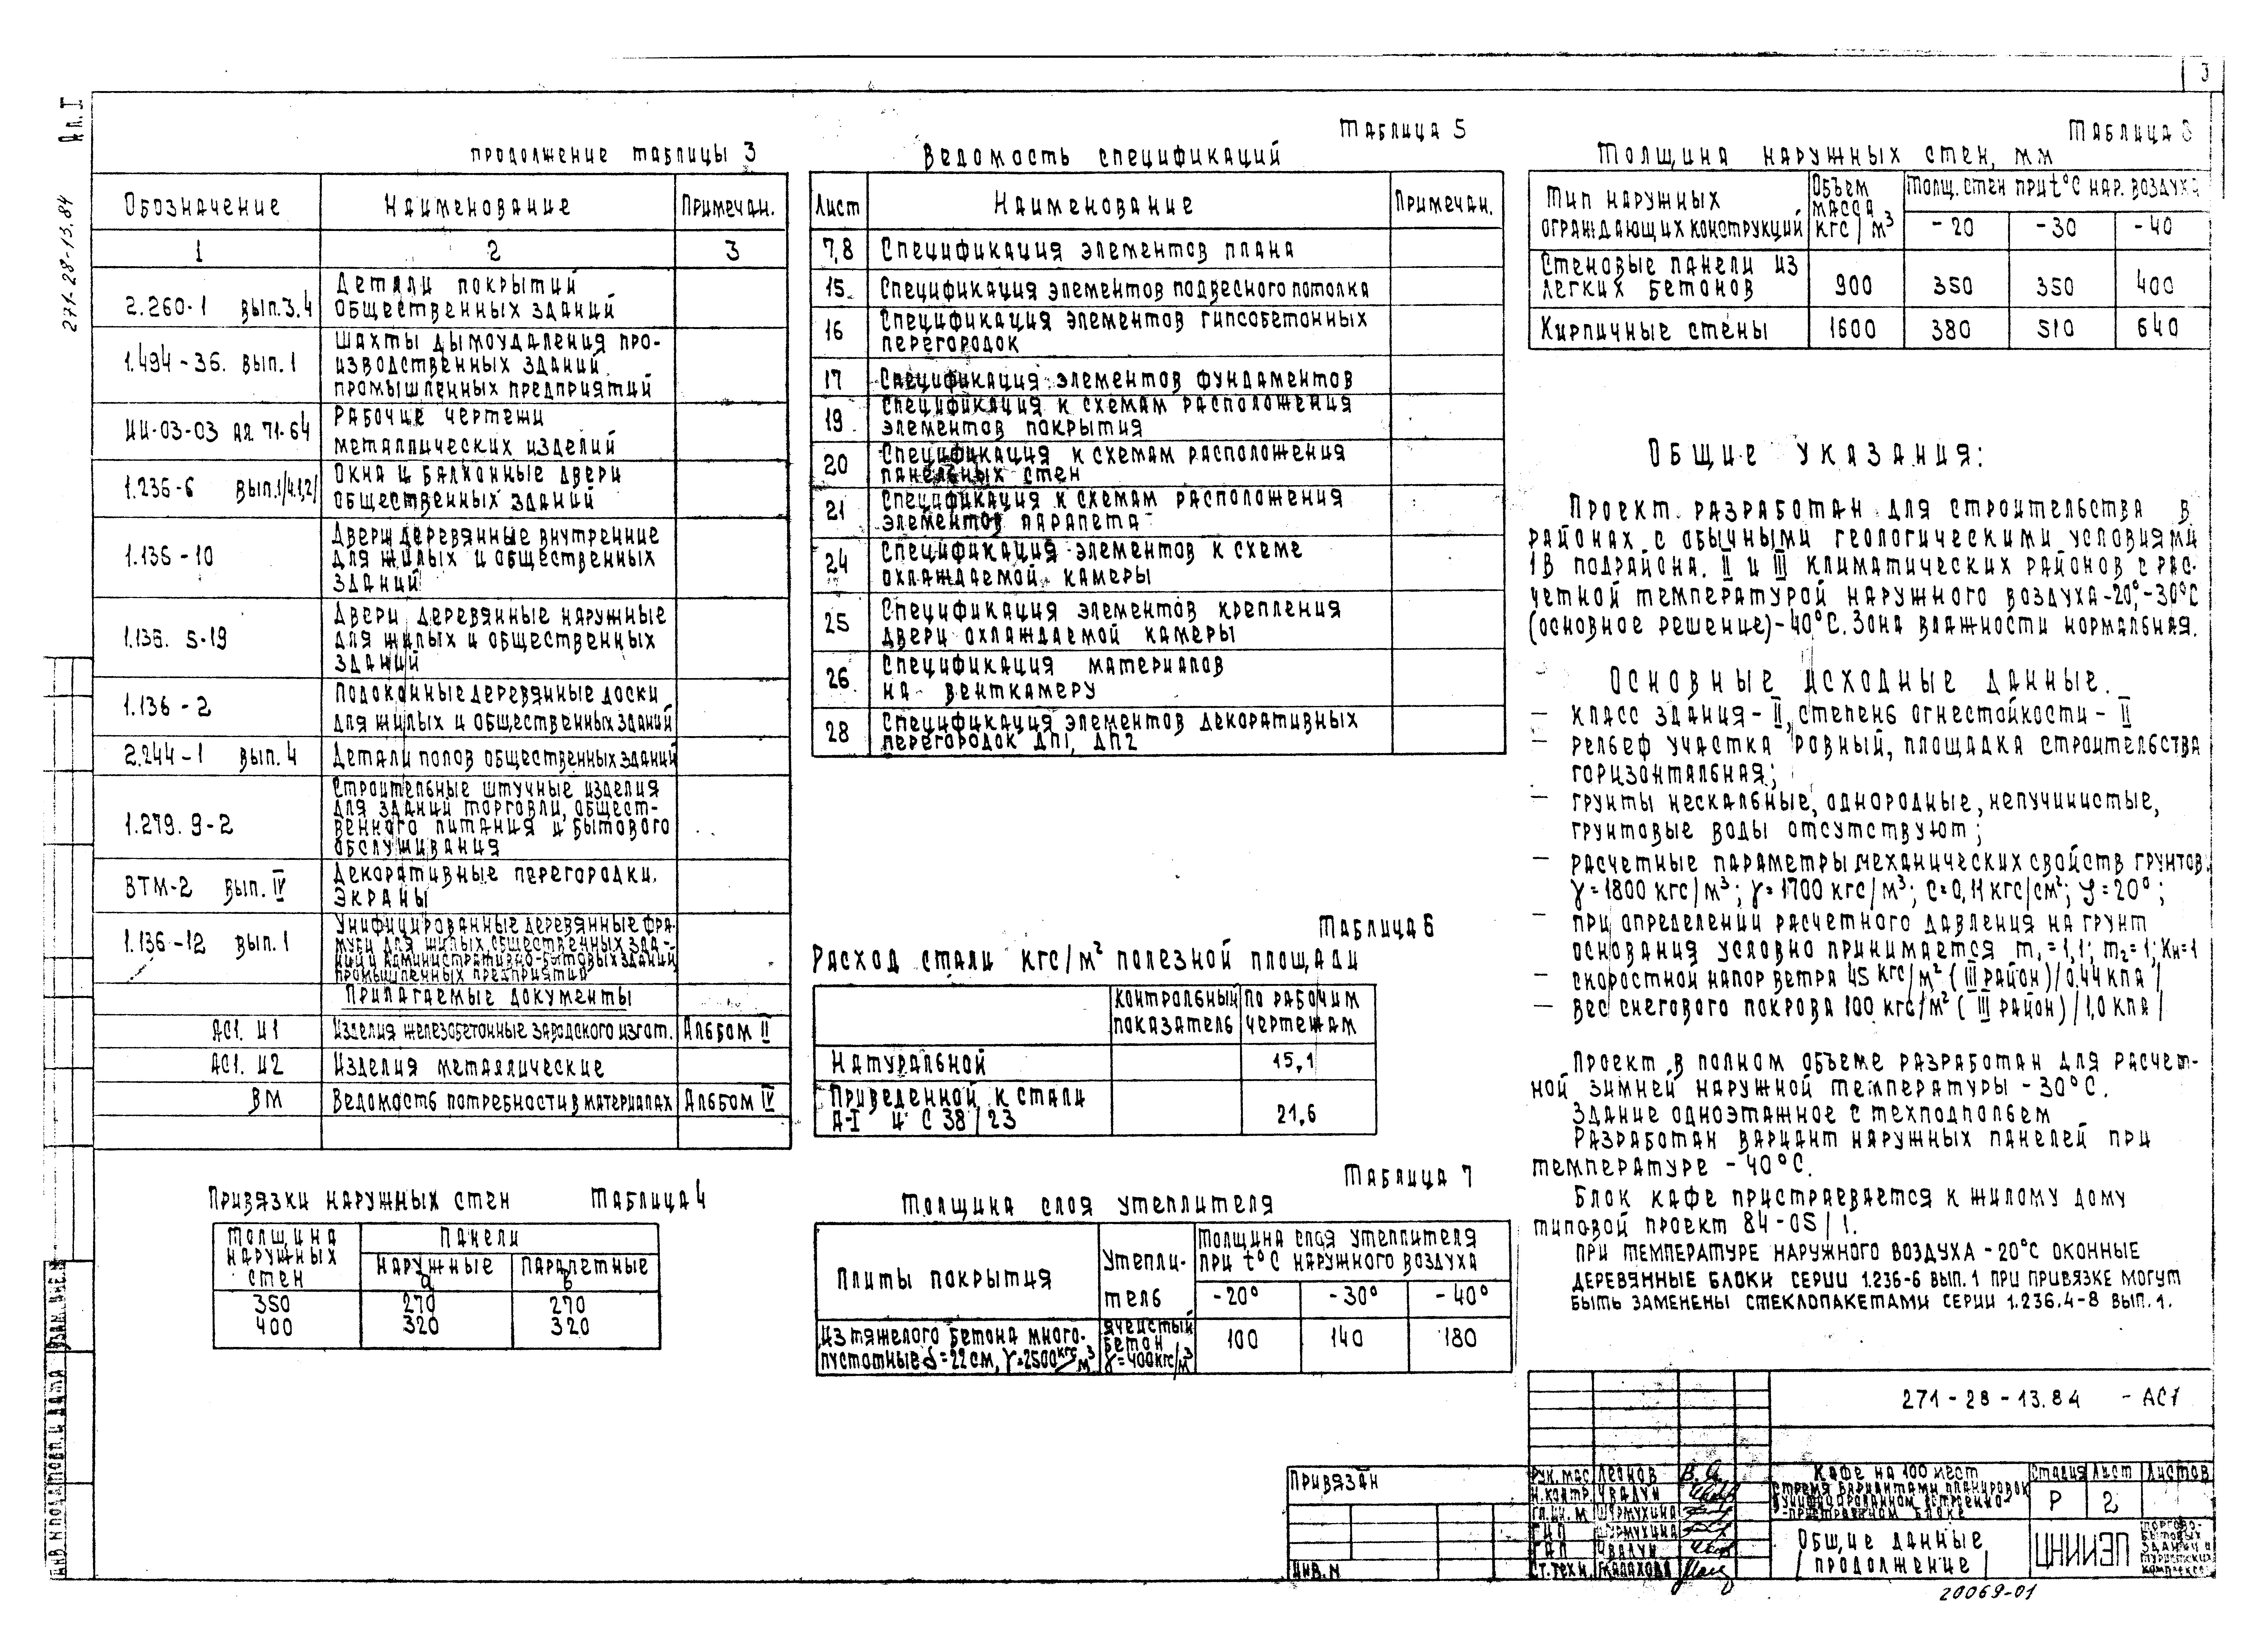 3
Ал. I
271-28-13.84
продолжение таблицы 3
Обозначение Наименование Примечан.
1 2 3
2.260-1 вып.3.4 Детали покрытий
общественных зданий
1.494-36. вып.1 Шахты дымоудаления про-
изводственных зданий
промышленных предприятий
ИИ-03-03 ал. 71-64 Рабочие чертежи
металлических изделий
1.236-6 вып.1/ч.1,2/ Окна и балконные двери
общественных зданий
1.136-10 Двери деревянные внутренние
для жилых и общественных
зданий
1.136. 5-19 Двери деревянные наружные
для жилых и общественных
зданий
1.136-2 Подоконные деревянные доски
для жилых и общественных зданий
2.244-1 вып. 4 Детали полов общественных зданий
1.279. 9-2 Строительные штучные изделия
для зданий торговли, общест-
венного питания и бытового
обслуживания
ВТМ-2 вып. IV Декоративные перегородки.
Экраны
1.136-12 вып.1 Унифицированные деревянные фра-
муги для жилых, общественных зда-
ний и административно-бытовых зданий
промышленных предприятий
Прилагаемые документы
АС1. И1 Изделия железобетонные заводского изгот. Альбом II
АС1. И2 Изделия металлические
ВМ Ведомость потребности в материалах Альбом IV
Привязки наружных стен Таблица 4
Толщина
наружных
стен
Панели
Наружные
а
Парапетные
в
350 270 270
400 320 320
Таблица 5
Ведомость спецификаций
Лист Наименование Примечан.
7,8 Спецификация элементов плана
15. Спецификация элементов подвесного потолка
16 Спецификация элементов гипсобетонных
перегородок
17 Спецификация элементов фундаментов
19 Спецификация к схемам расположения
элементов покрытия
20 Спецификация к схемам расположения
панельных стен
21 Спецификация к схемам расположения
элементов парапета
24 Спецификация элементов к схеме
охлаждаемой камеры
25 Спецификация элементов крепления
двери охлаждаемой камеры
26 Спецификация материалов
на венткамеру
28 Спецификация элементов декоративных
перегородок ДП1, ДП2
Таблица 6
Расход стали кгс/м² полезной площади
контрольный
показатель
по рабочим
чертежам
Натуральной 15,1
Приведенной к стали
А-I и С 38/23 21,6
Таблица 7
Толщина слоя утеплителя
Плиты покрытия
Утепли-
тель
Толщина слоя утеплителя
при t°С наружного воздуха
-20° -30° -40°
Из тяжелого бетона много-
пустотные δ=22см, γ=2500кгс/м³
ячеистый
бетон
γ=400кгс/м³
100 140 180
Таблица 8
Толщина наружных стен, мм
Тип наружных
ограждающих конструкций
Объем
масса
кгс/м³
Толщ. стен при t°С нар. воздуха
-20 -30 -40
Стеновые панели из
легких бетонов 900 350 350 400
Кирпичные стены 1600 380 510 640
Общие указания:
Проект разработан для строительства в
районах с обычными геологическими условиями
1В подрайона. II и III климатических районов с рас-
четной температурой наружного воздуха -20°, -30°С
(основное решение) -40°С. Зона влажности нормальная.
Основные исходные данные.
— класс здания - II, степень огнестойкости - II
— рельеф участка ровный, площадка строительства
горизонтальная;
— грунты нескальные, однородные, непучинистые,
грунтовые воды отсутствуют;
— расчетные параметры механических свойств грунтов.
γ=1800 кгс/м³; γ=1700 кгс/м³; с=0,11кгс/см²; φ=20°;
— при определении расчетного давления на грунт
основания условно принимается m₁=1,1; m₂=1; Кн=1
— скоростной напор ветра 45 кгс/м² (III район)/0.44 кПа/
— вес снегового покрова 100 кгс/м² (III район)/1,0 кПа/
Проект в полном объеме разработан для расчет-
ной зимней наружной температуры -30°С.
Здание одноэтажное с техподпольем
Разработан вариант наружных панелей при
температуре -40°С.
Блок кафе пристраевается к жилому дому
типовой проект 84-05/1.
При температуре наружного воздуха -20°С оконные
деревянные блоки серии 1.236-6 вып.1 при привязке могут
быть заменены стеклопакетами серии 1.236.4-8 вып.1.
271-28-13.84 - АС1
Привязан
Инв. N
Рук. мас. Леонов
Н. контр. Чвалун
Гл. ин. М Шурмухина
ГИП Шурмухина
ГАП Чвалун
Ст. техн.
Кафе на 100 мест
с тремя вариантами планировок
в унифицированном встроенно-
-пристроенном блоке
Стадия Лист Листов
Р 2
Общие данные
/продолжение/
ЦНИИЭП
торгово-
бытовых
зданий и
туристских
комплексов
20069-01
Инв. N подл. Подп. и дата Взам. инв. N